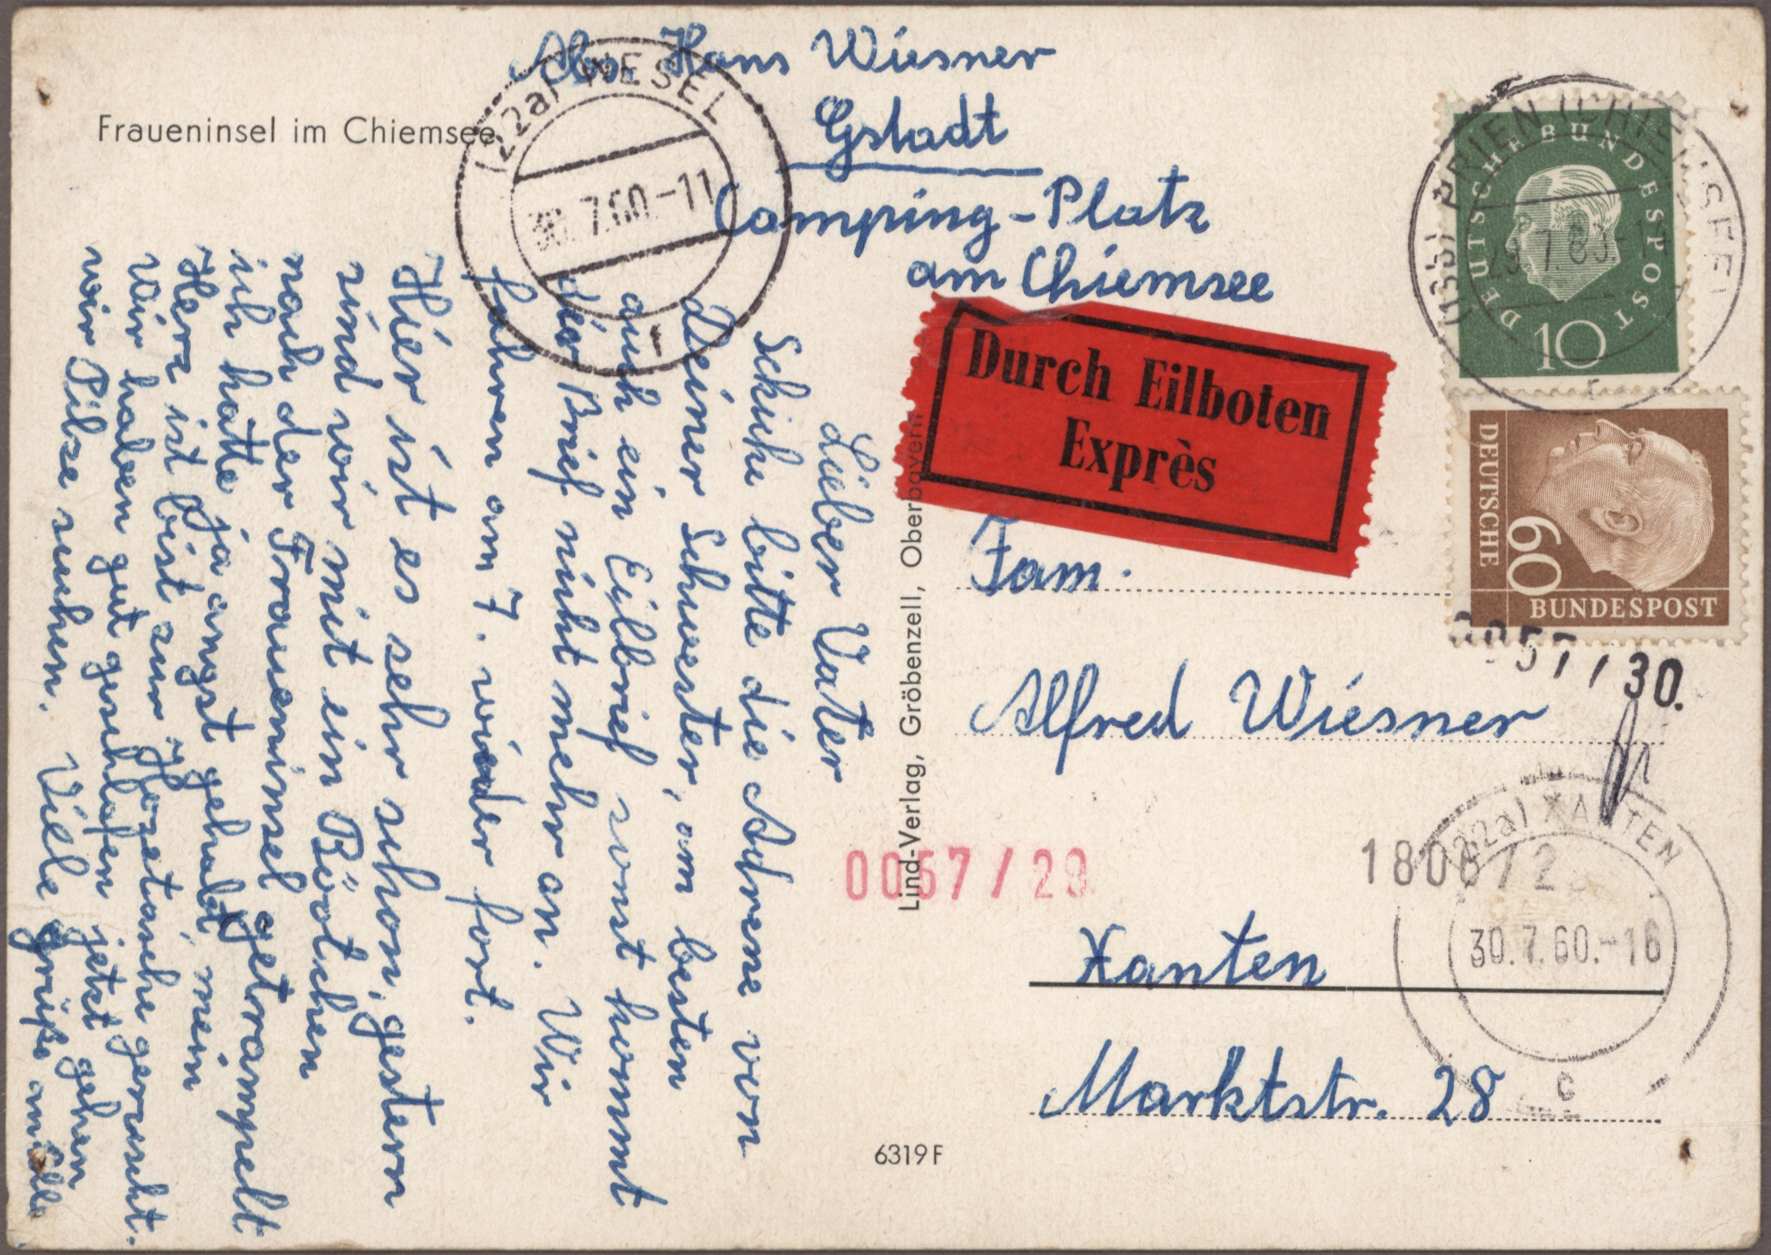 Fraueninsel im Chiemsee
Abs. Hans Wiesner
Gstadt
Camping-Platz
am Chiemsee
(22a) WESEL
30. 7.60.-11
(13b) PRIEN (CHIEMSEE)
29.7.60.-14
DEUTSCHE BUNDESPOST
10
DEUTSCHE
BUNDESPOST
60
Durch Eilboten
Exprès
Lieber Vater
Schicke bitte die Adresse von
Deiner Schwester, am besten
auch ein Eilbrief sonst kommt
der Brief nicht mehr an. Wir
fahren am 7. wieder fort.
Hier ist es sehr schon, gestern
sind wir mit ein Bötchen
nach der Fraueninsel getrampelt
ich hatte ja angst gehabt, mein
Herz ist bist zur Hozetasche gerutscht.
Wir haben gut geschlafen jetzt gehen
wir Pilze suchen. Viele Grüße an alle
Lind-Verlag, Gröbenzell, Oberbayern
Fam.
Alfred Wiesner
Xanten
Marktstr. 28
0057/30.
0057/29
1806/2
(22a) XANTEN
30.7.60.-16
c
6319 F